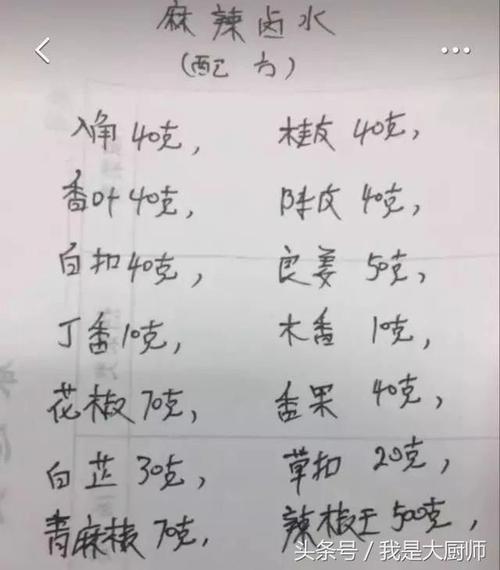 麻辣卤水
(配方)
八角40克, 桂皮40克,
香叶40克, 陈皮40克,
白扣40克, 良姜50克,
丁香10克, 木香10克,
花椒70克, 香果40克,
白芷30克, 草扣20克,
青麻椒70克, 辣椒王500克,
头条号/我是大厨师